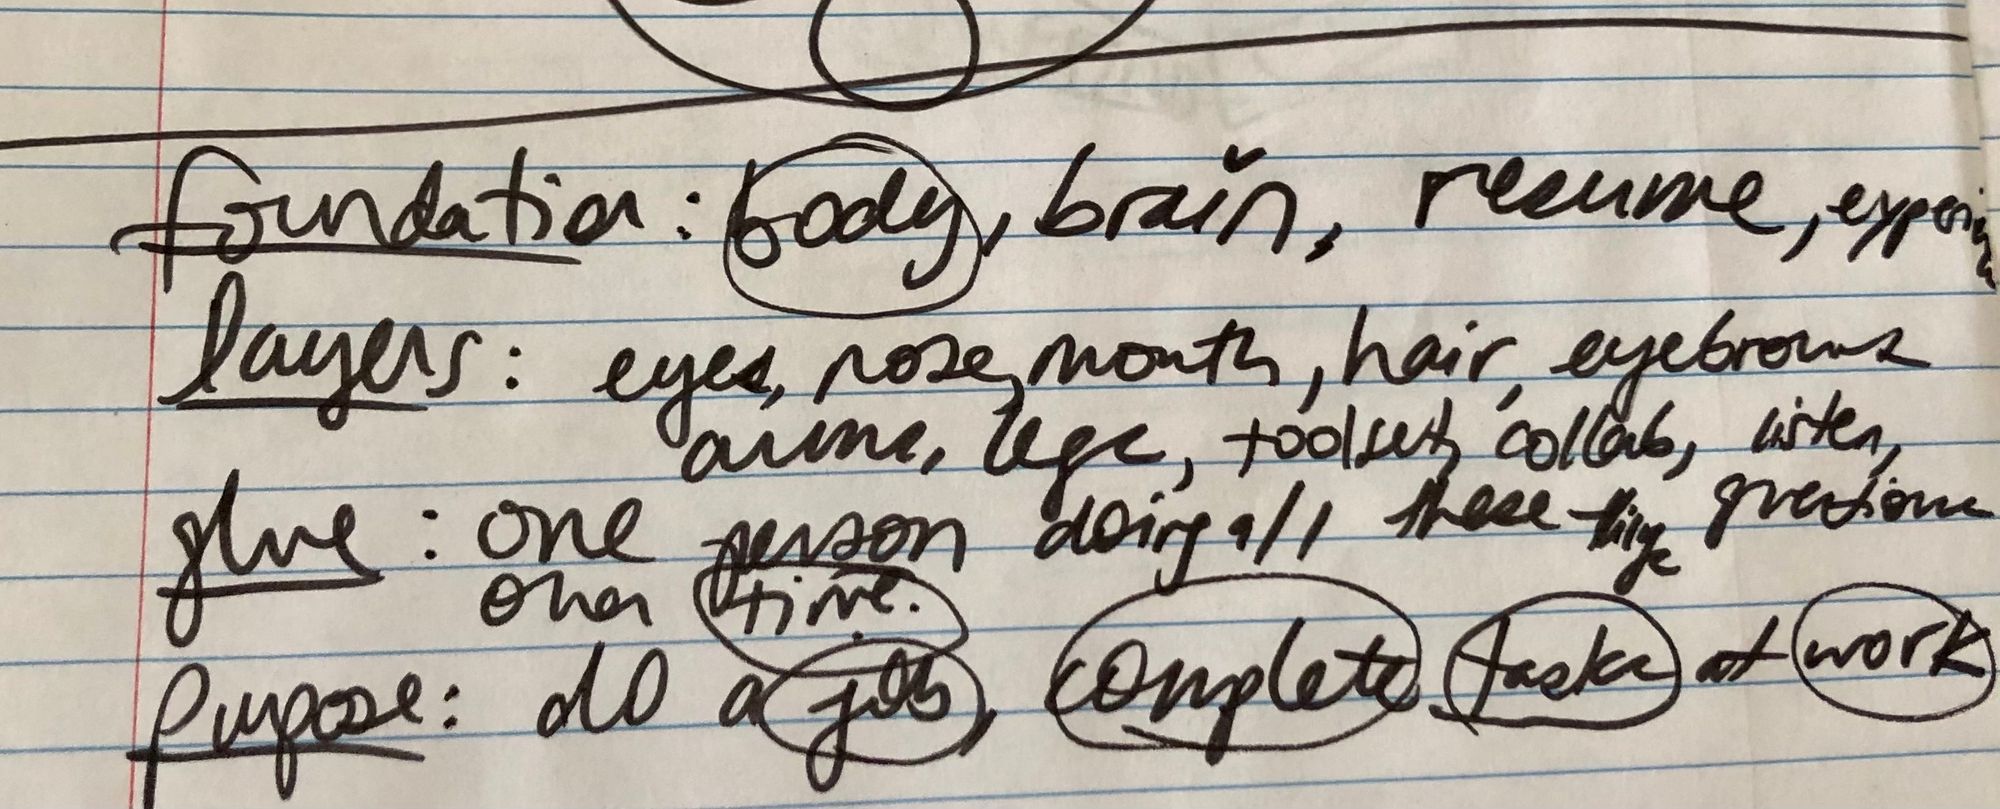 foundation: body, brain, resume,
layers: eyes, nose, mouth, hair, eyebrows
arms, legs, toolset, collab, listen,
glue: one person doing all these things questions
over time.
purpose: do a job, complete tasks at work